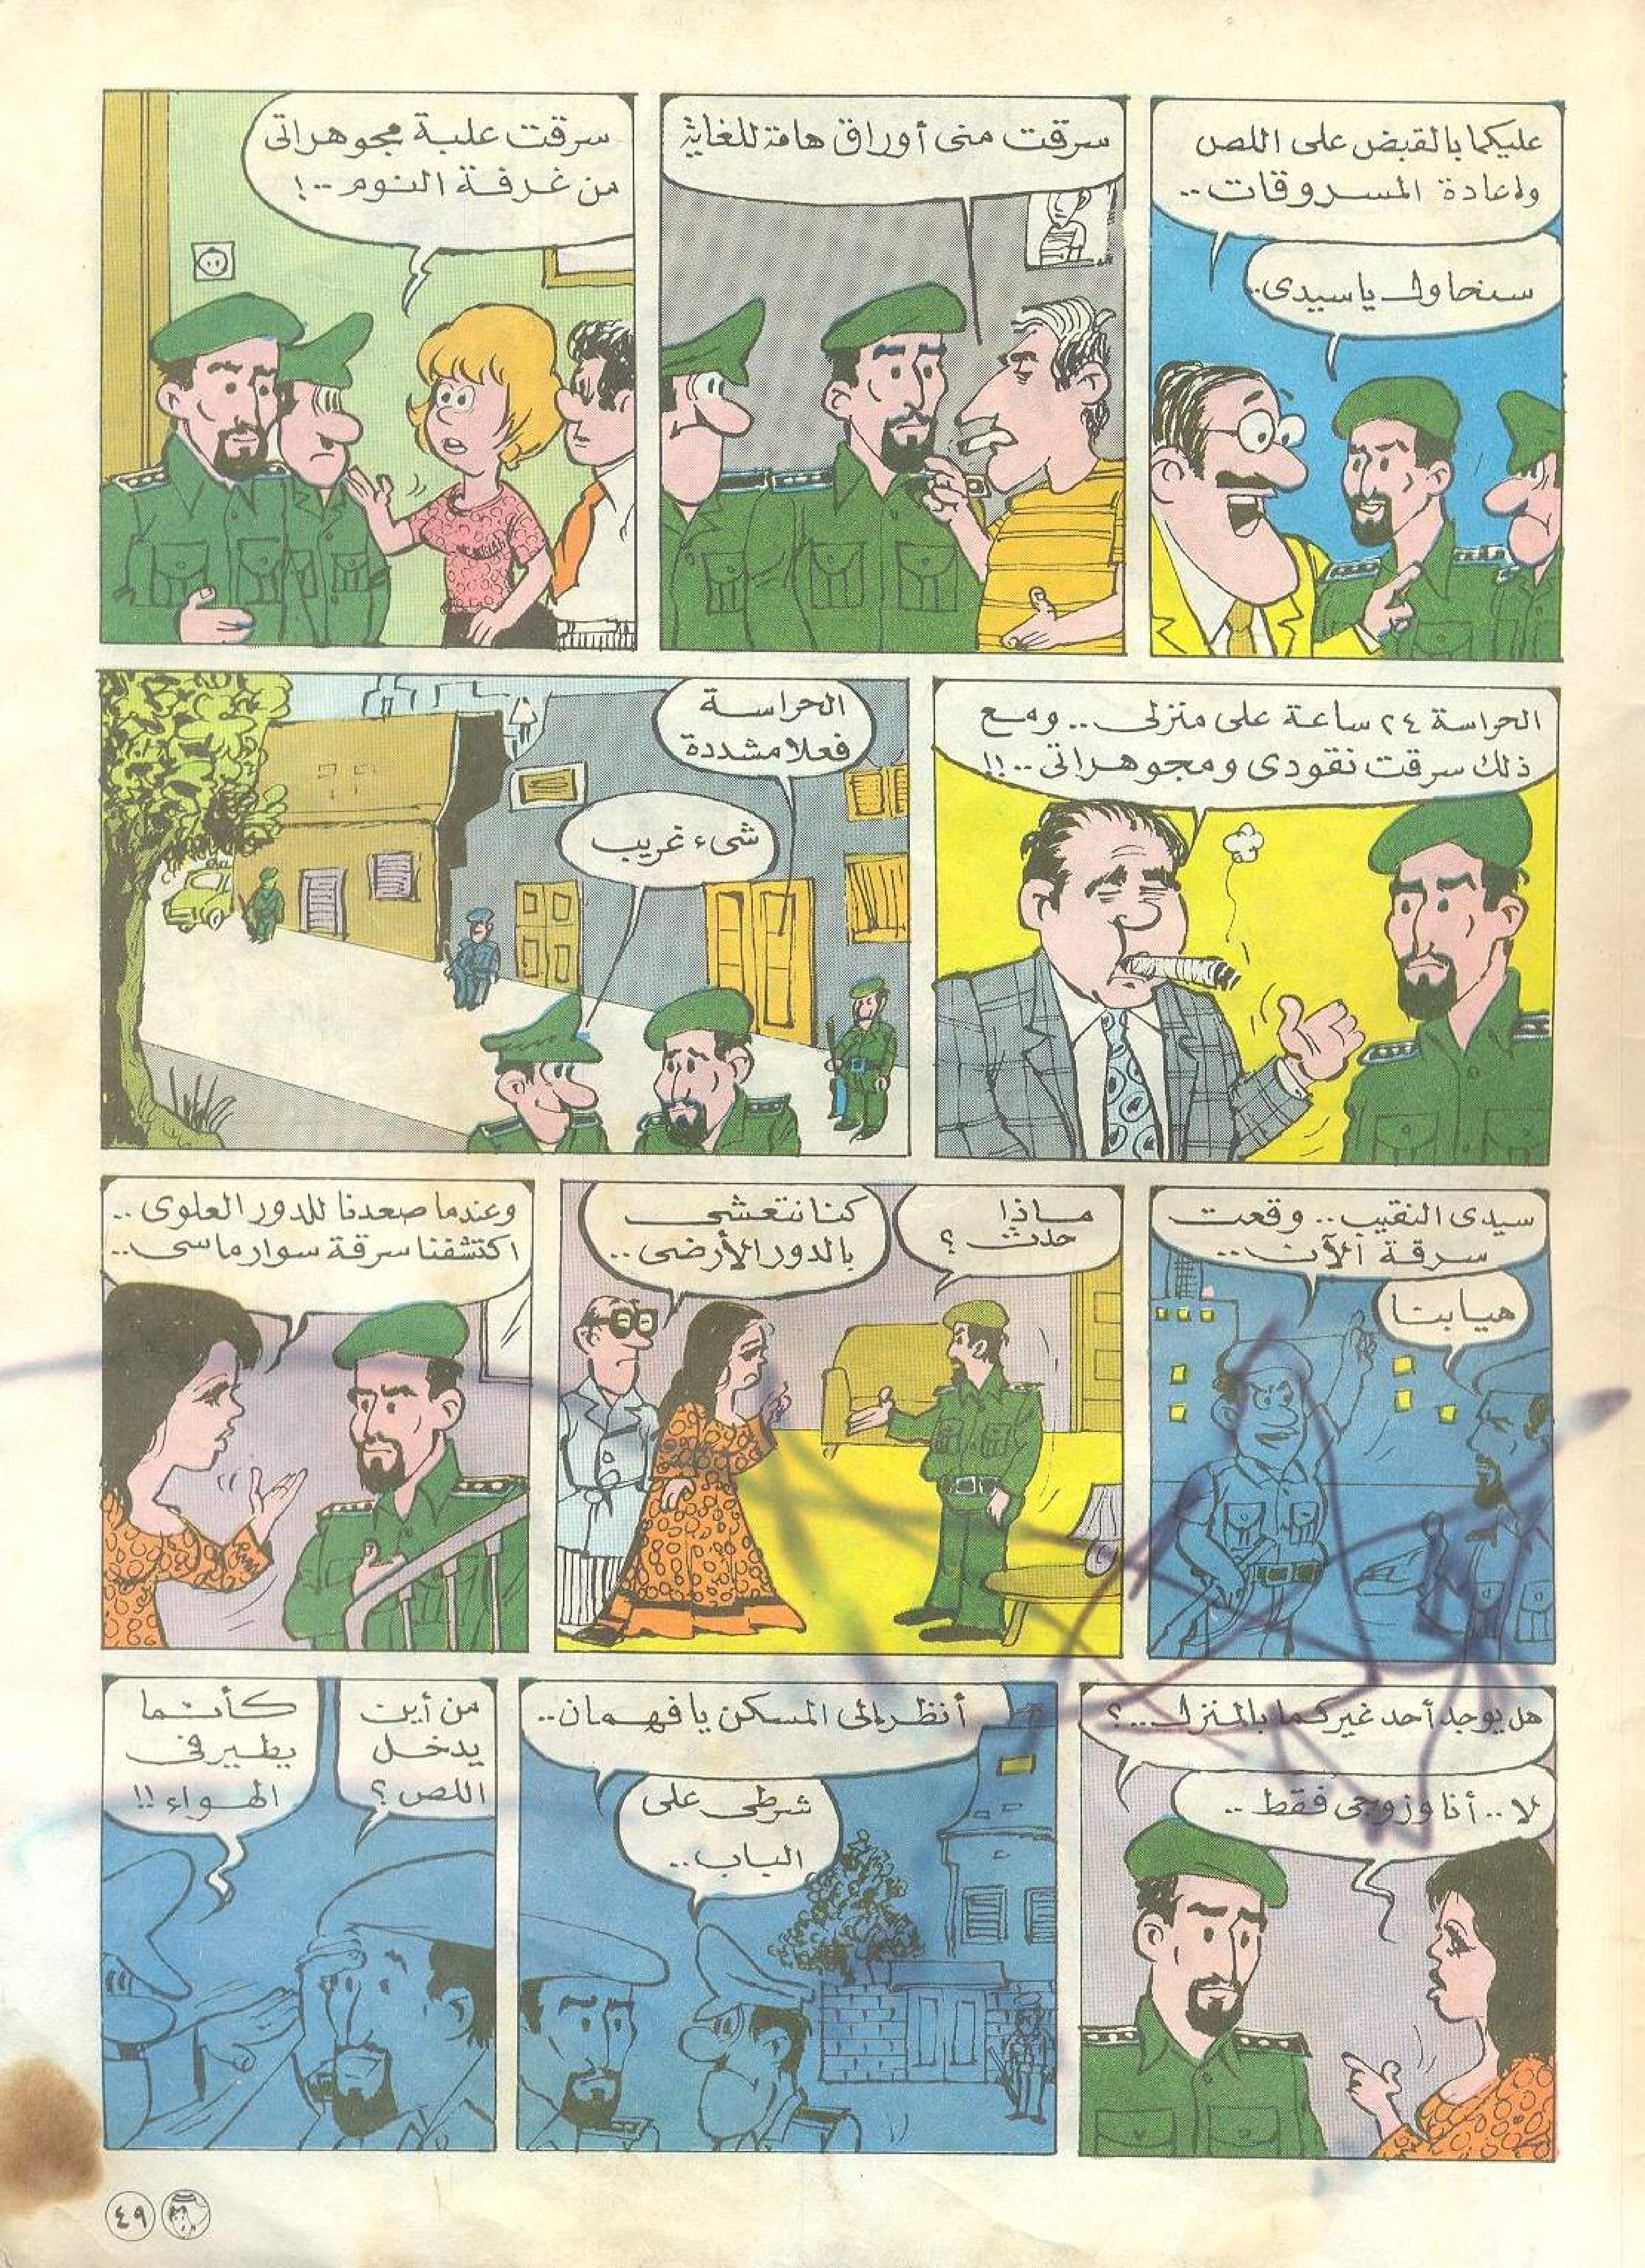 عليكما بالقبض على اللص
وإعادة المسروقات..
سنحاول ياسيدى..
سرقت منى أوراق هامة للغاية
سرقت علبة مجوهراتى
من غرفة النوم..!
الحراسة ٢٤ ساعة على منزلى.. ومع
ذلك سرقت نقودى ومجوهراتى..!!
الحراسة
فعلا مشددة
شىء غريب
سيدى النقيب.. وقعت
سرقة الآن..
هيا بنا
ماذا
حدث؟
كنا نتعشى
بالدور الأرضى..
وعندما صعدنا للدور العلوى..
اكتشفنا سرقة سوار ماسى..
هل يوجد أحد غيركما بالمنزل..؟
لا.. أنا وزوجى فقط..
أنظر إلى المسكن يا فهمان..
شرطى على
الباب..
من أين
يدخل
اللص؟
كأنما
يطير فى
الهواء!!
٤٩